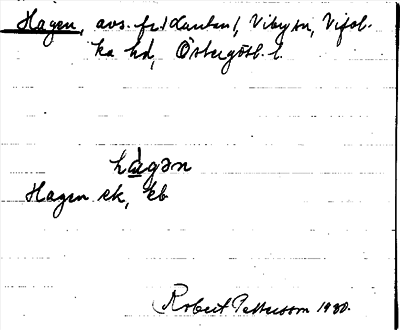 Hagen, avs. fr. Lunten, Viby sn, Vifol-
ka hd, Östergötl. l.
hagən
Hagen ek, kb
Robert Pettersson 1930.